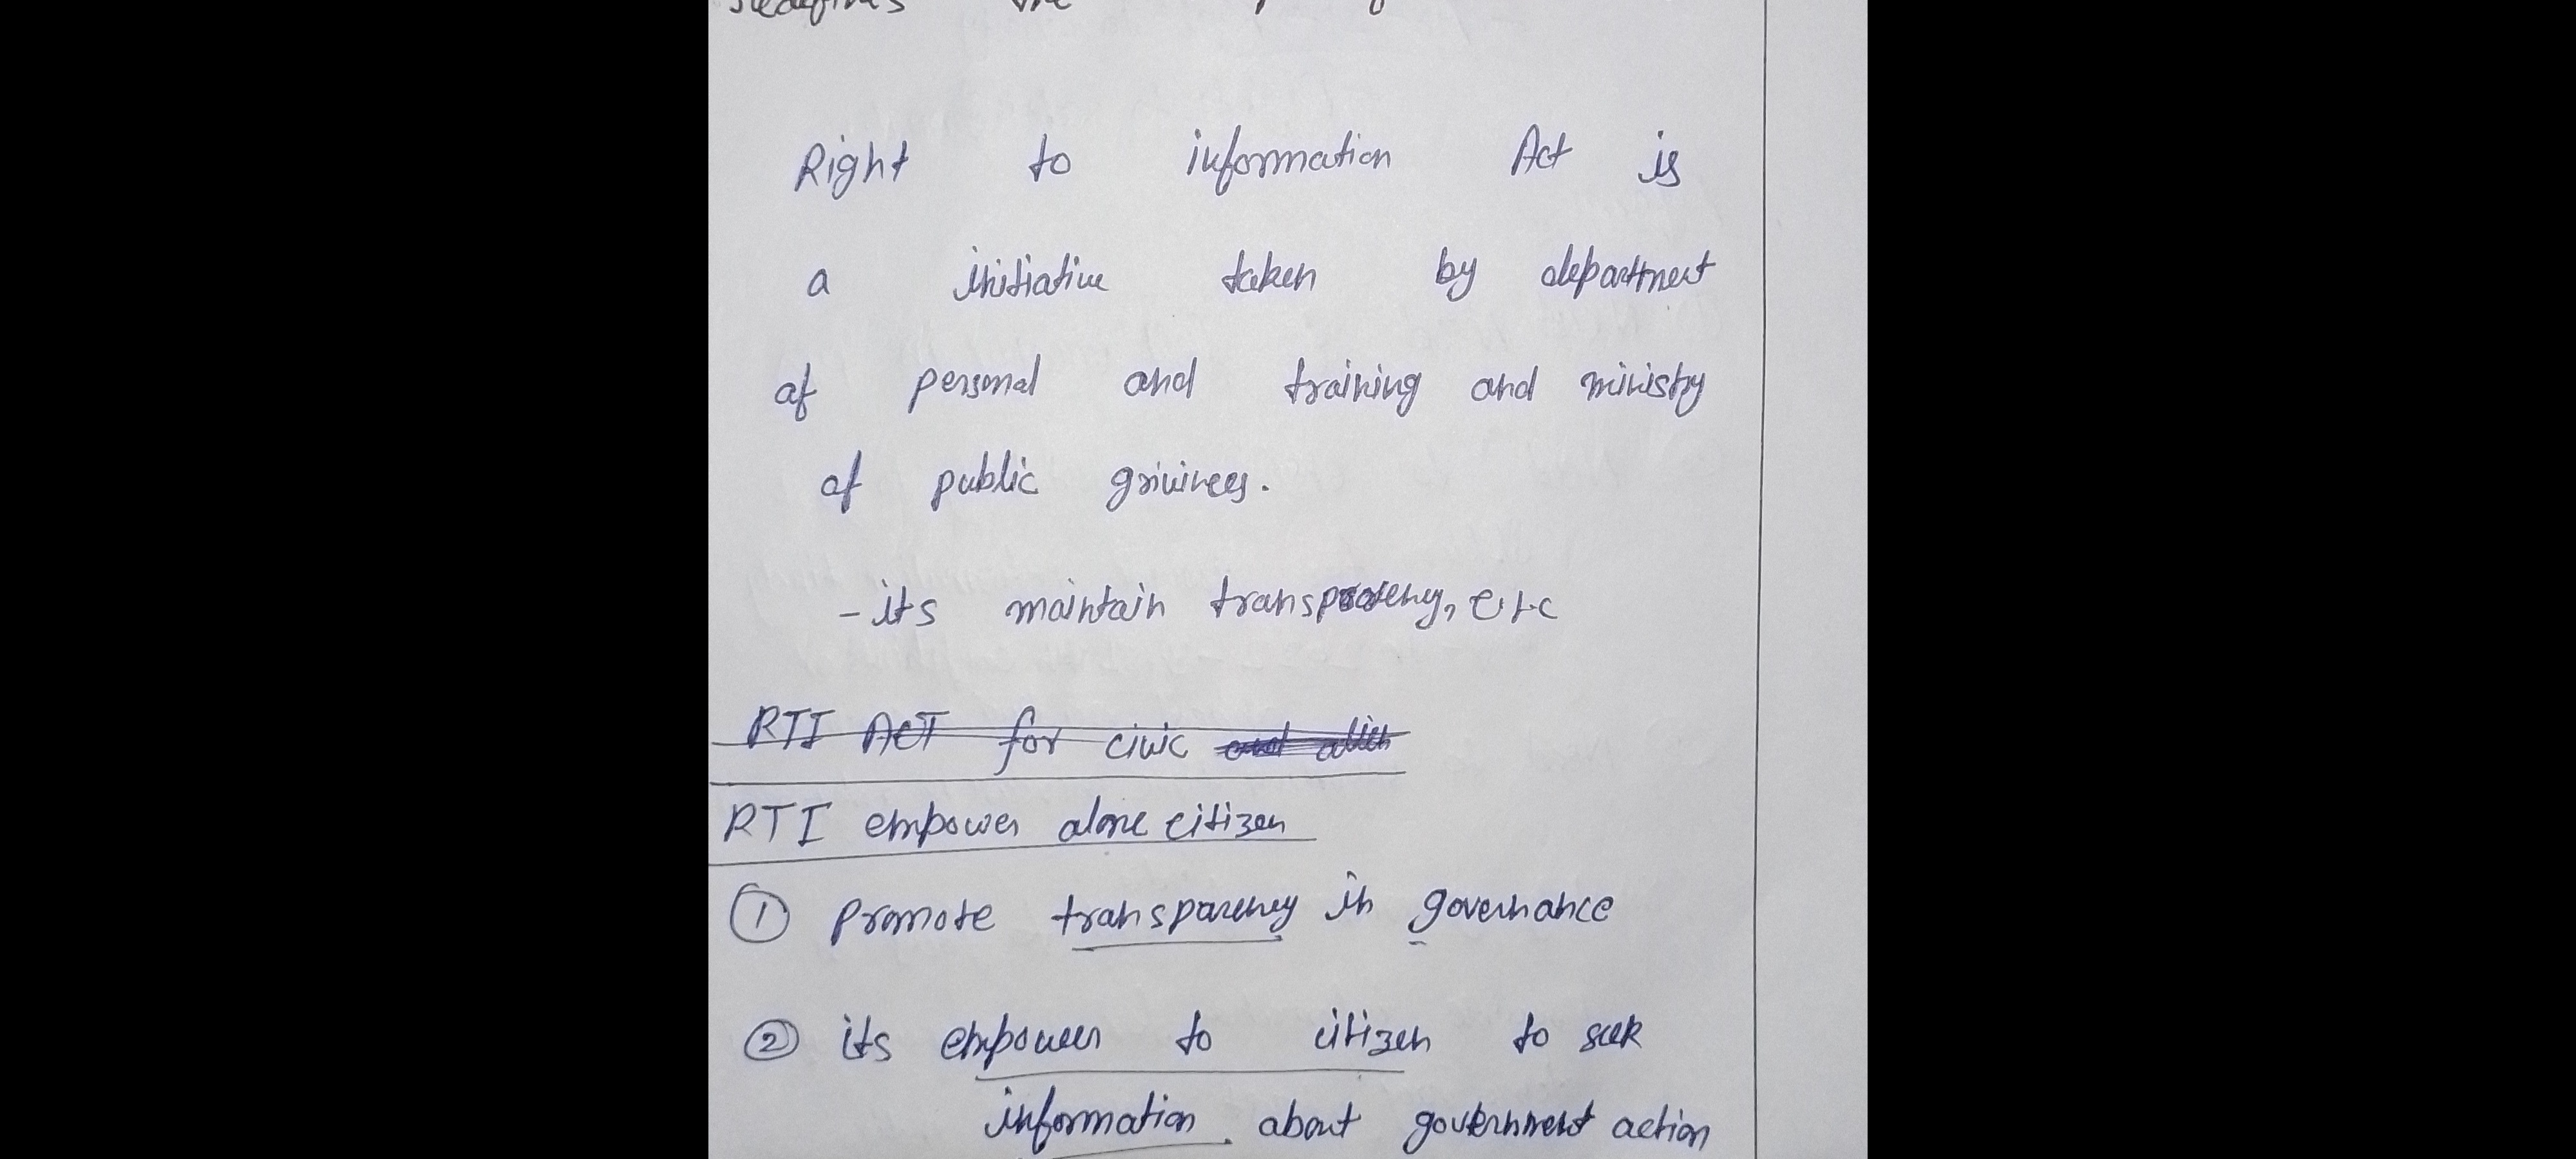 the
Right to information Act is
a initiative taken by department
of personal and training and ministry
of public grivinces.
- its maintain transparency, etc
RTI ACT for civic
RTI empower alone citizen
① Promote transparency in governance
② its empower to citizen to seek
information about government action